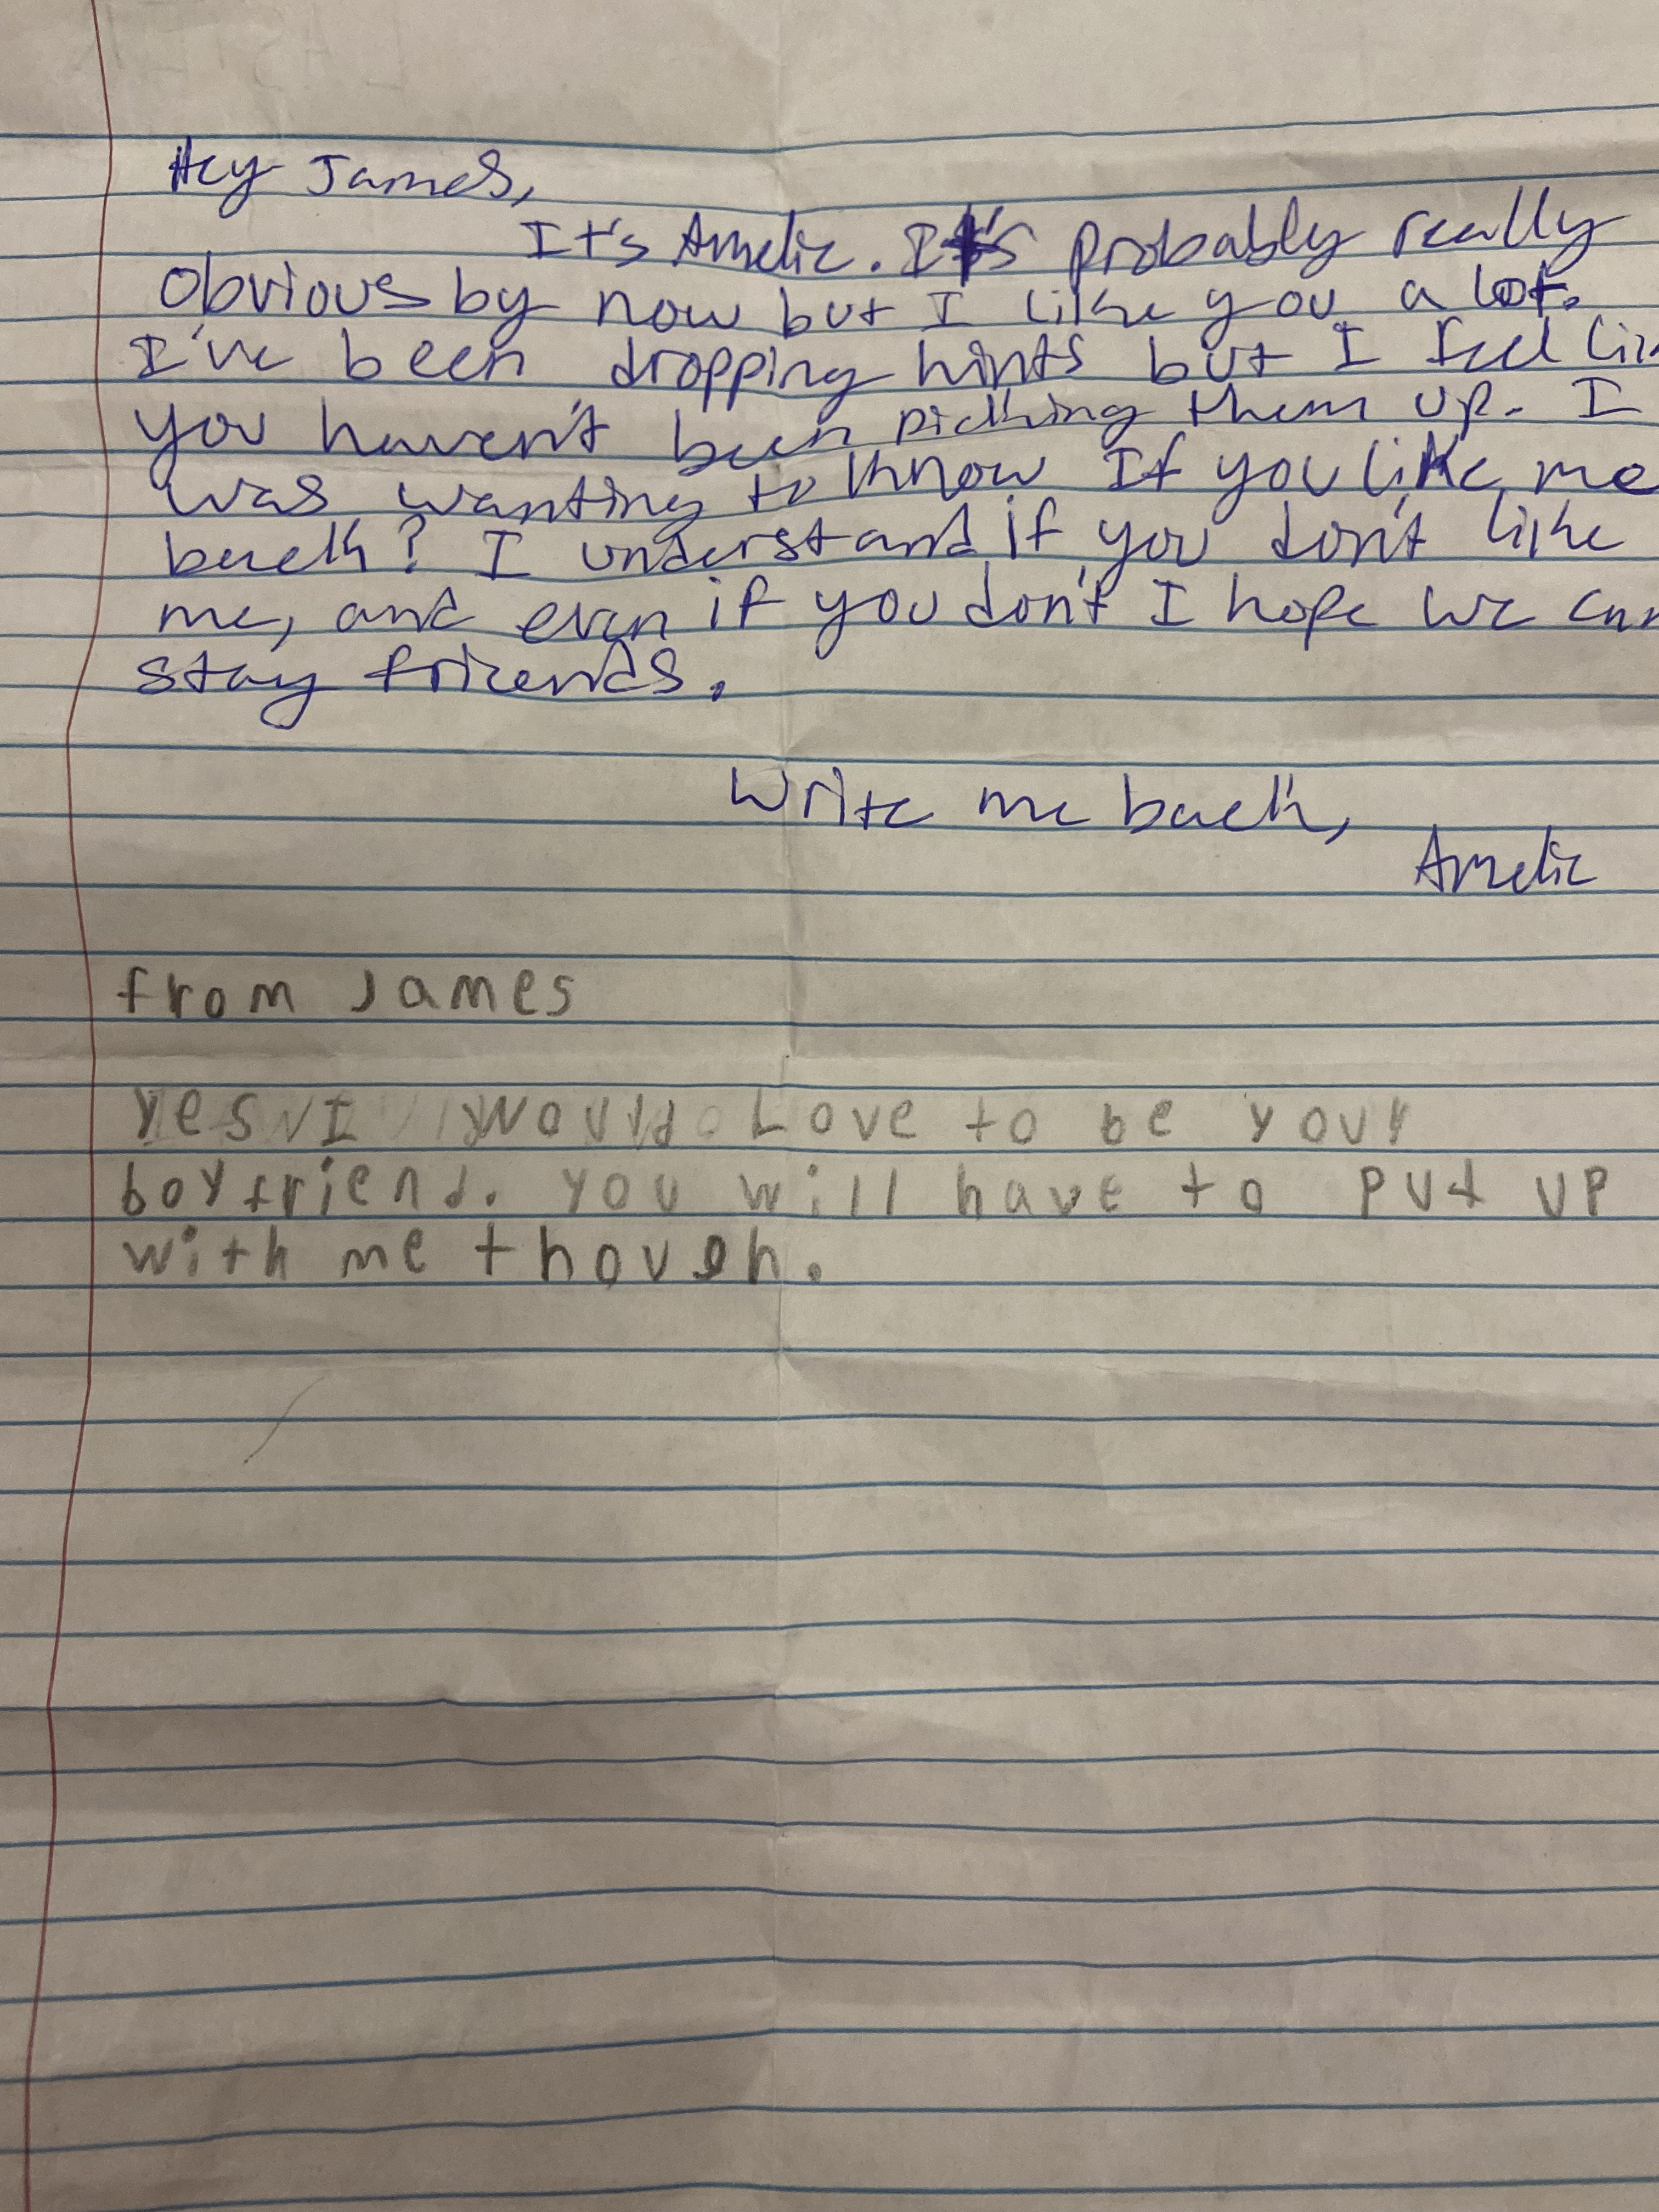 Hey James,
It's Amelie. It's probably really
obvious by now but I like you a lot.
I've been dropping hints but I feel lik
you haven't been picking them up. I
was wanting to know If you like me
back? I understand if you don't like
me, and even if you don't I hope we can
stay friends.
Write me back,
Amelie
from James
Yes I would Love to be your
boyfriend. you will have to put up
with me though.